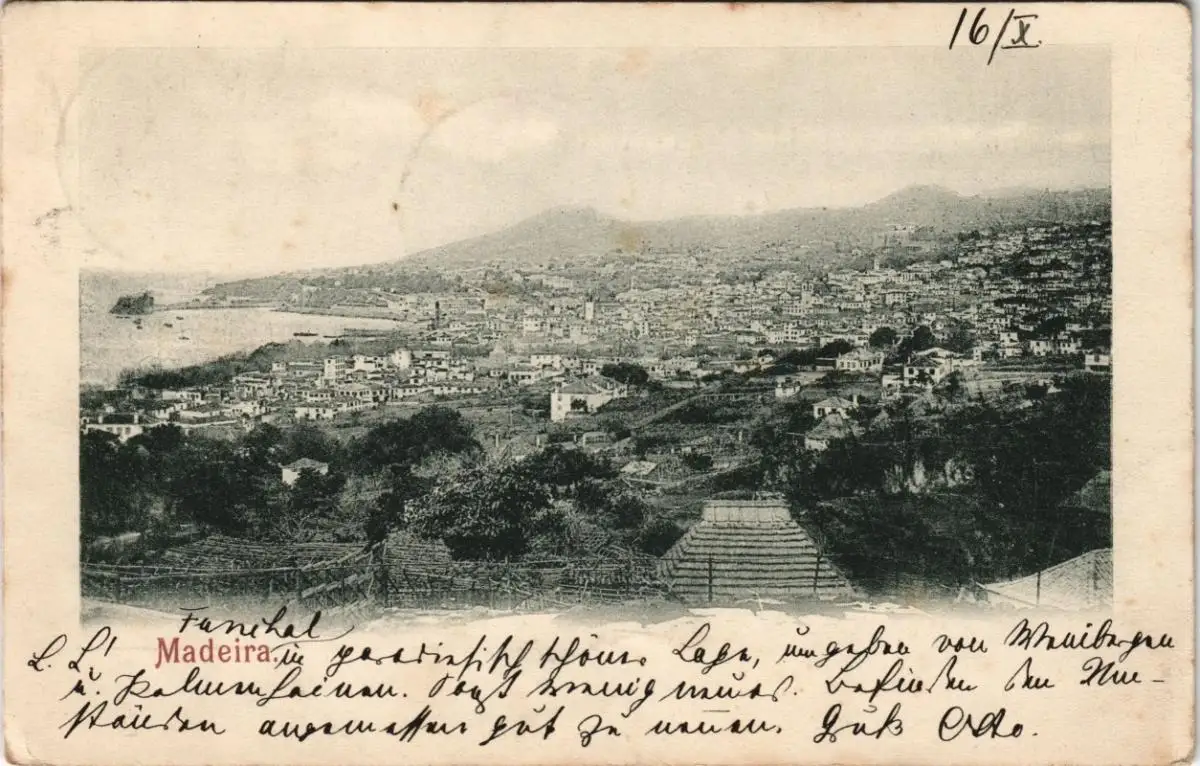 16/X.
Funchal
L. L!
Madeira. in paradiesisch schöner Lage, umgeben von Weinbergen
u. Palmenhainen. Sonst wenig neues. Befinden den Um-
ständen angemessen gut zu nennen. Gruß Otto.